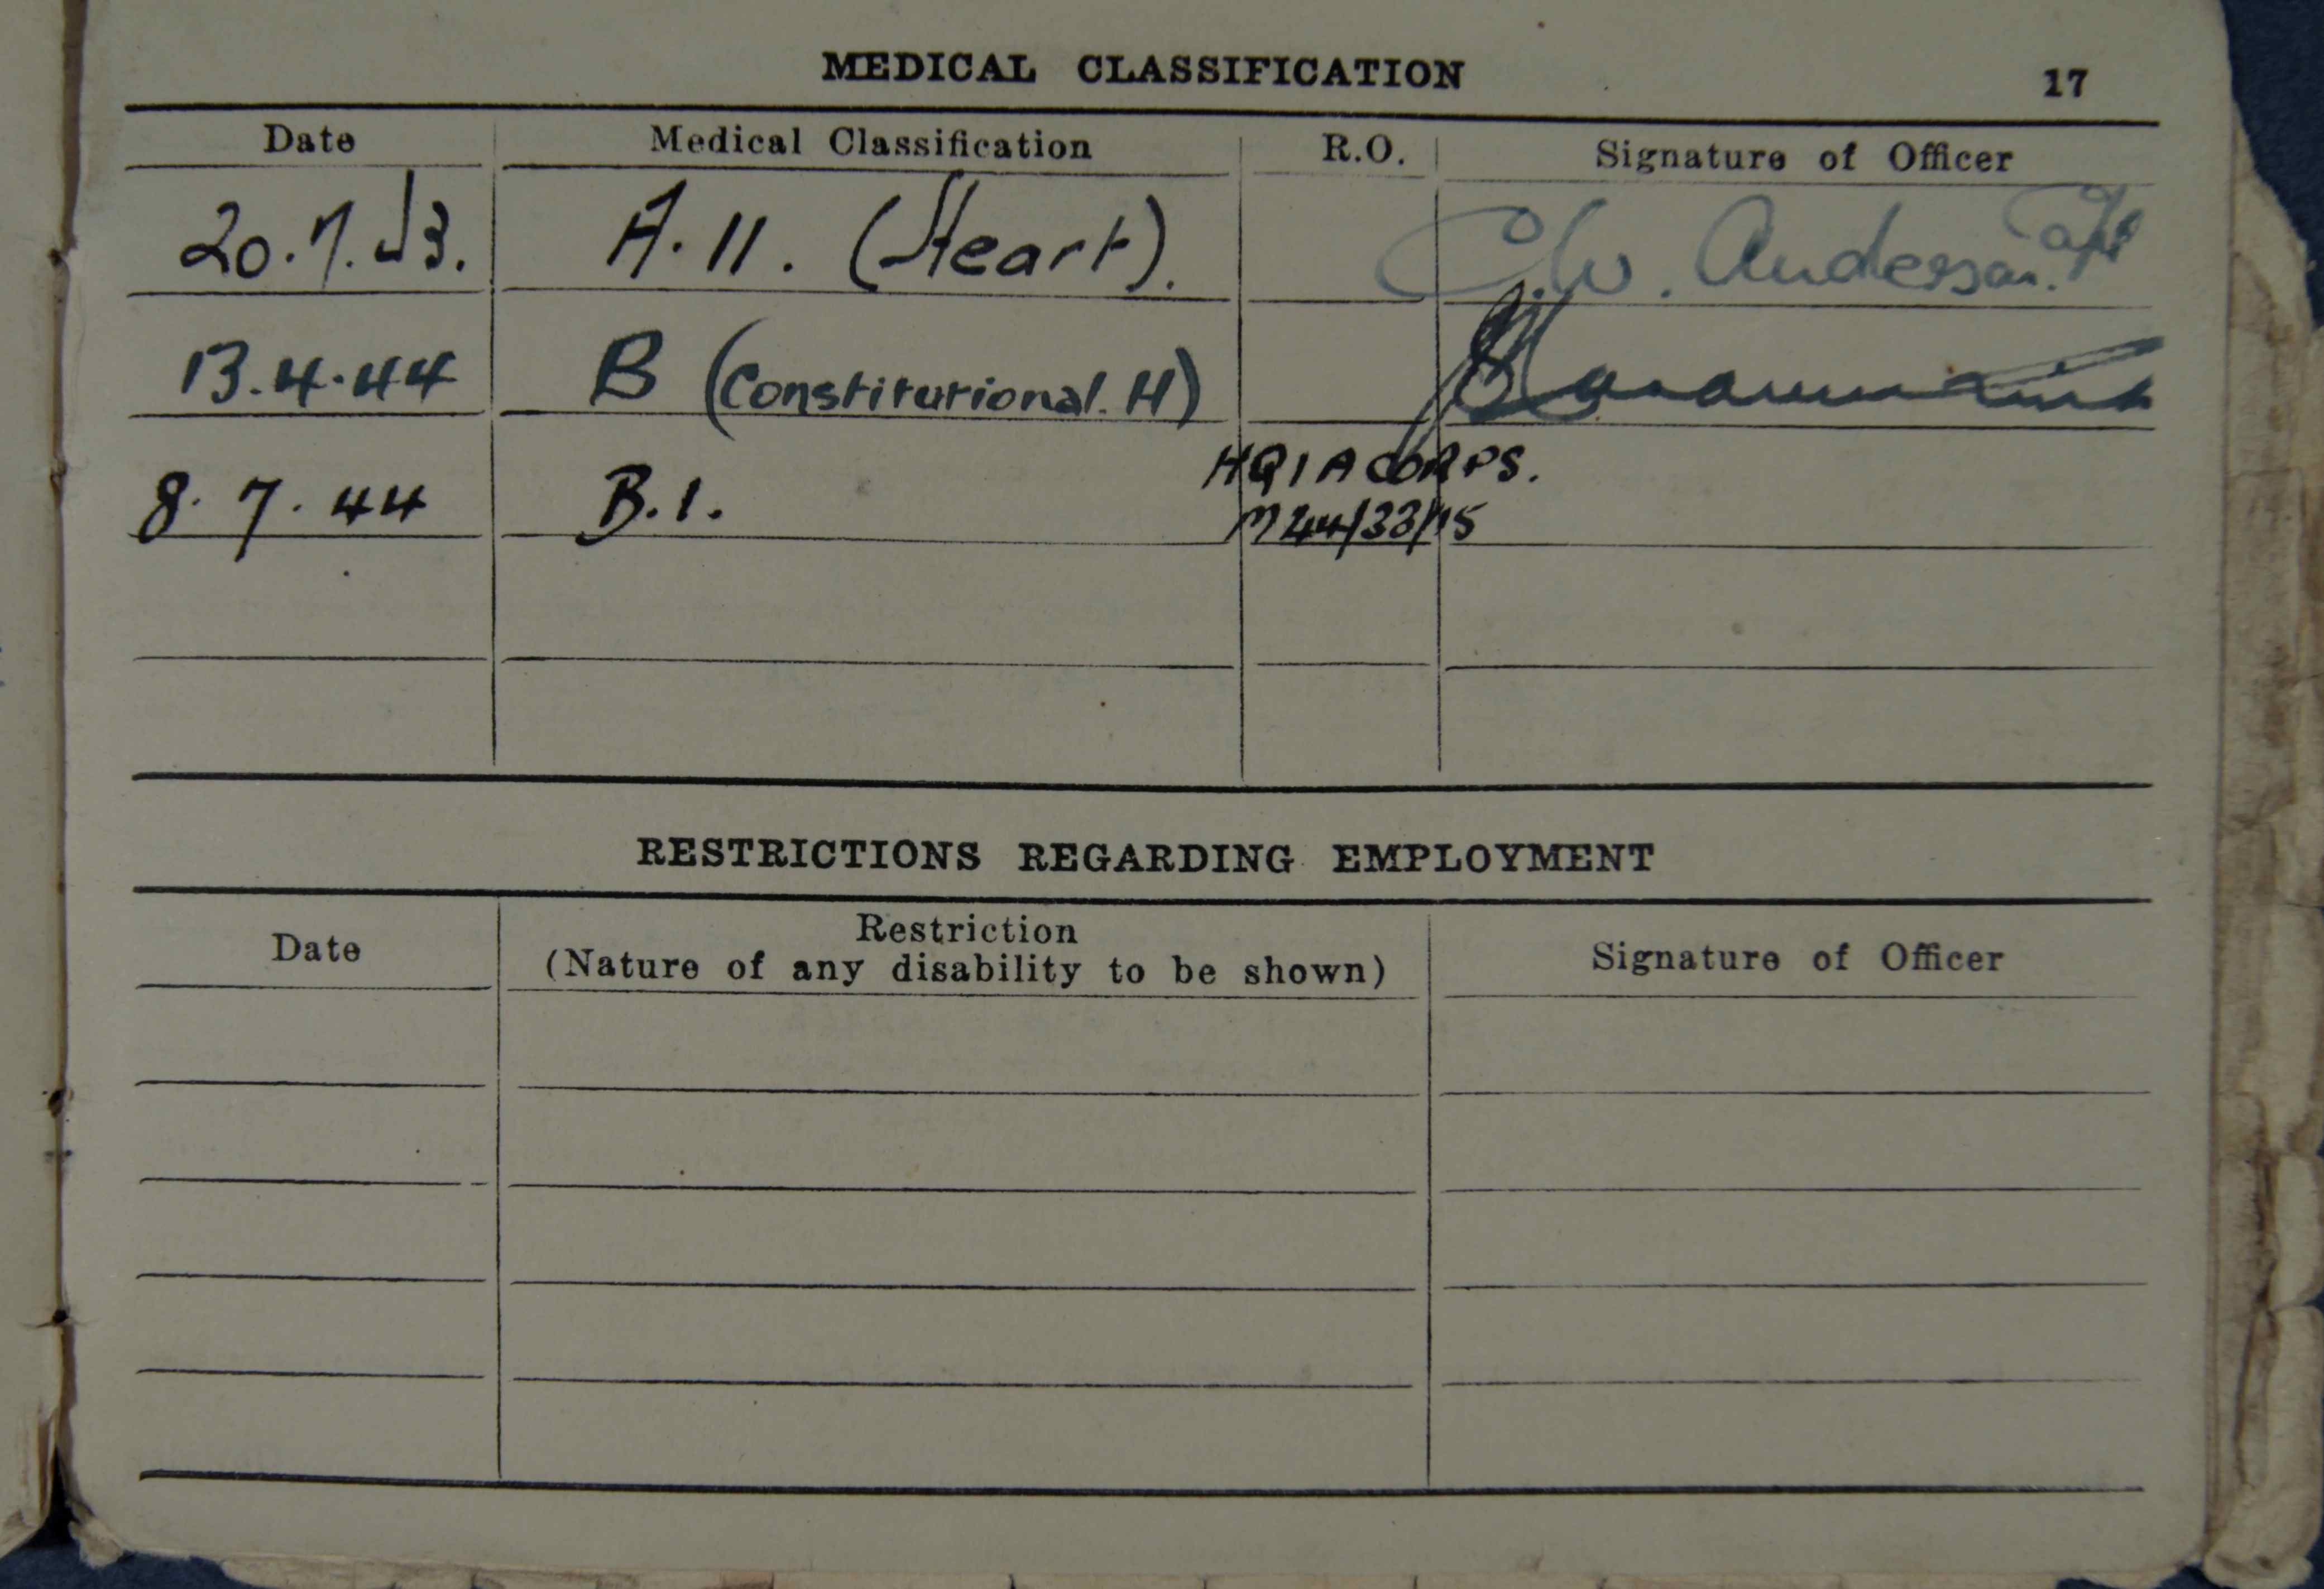 MEDICAL CLASSIFICATION 17
Date Medical Classification R.O. Signature of Officer
20.7.43. A.11. (Heart). C.W. Anderson. Capt
13.4.44 B (Constitutional. H)
8.7.44 B.1. HQ 1 A CORPS.
M44/33/15
RESTRICTIONS REGARDING EMPLOYMENT
Date Restriction Signature of Officer
(Nature of any disability to be shown)